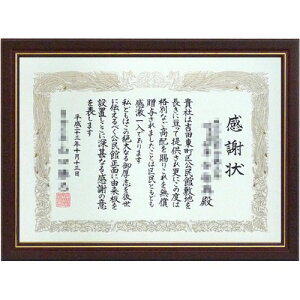 感謝状
殿
貴社は吉田東町区公民館敷地を
長きに亘って提供され更にこの度は
格別なご高配を賜りこれを無償
贈与されましたことは区民ともども
感激一入であります
私どもはこの絶大なる御厚志を後世
に伝えるべく公民館正面に由来板を
設置するとともに深甚なる感謝の意
を表します
平成二十三年十月十三日